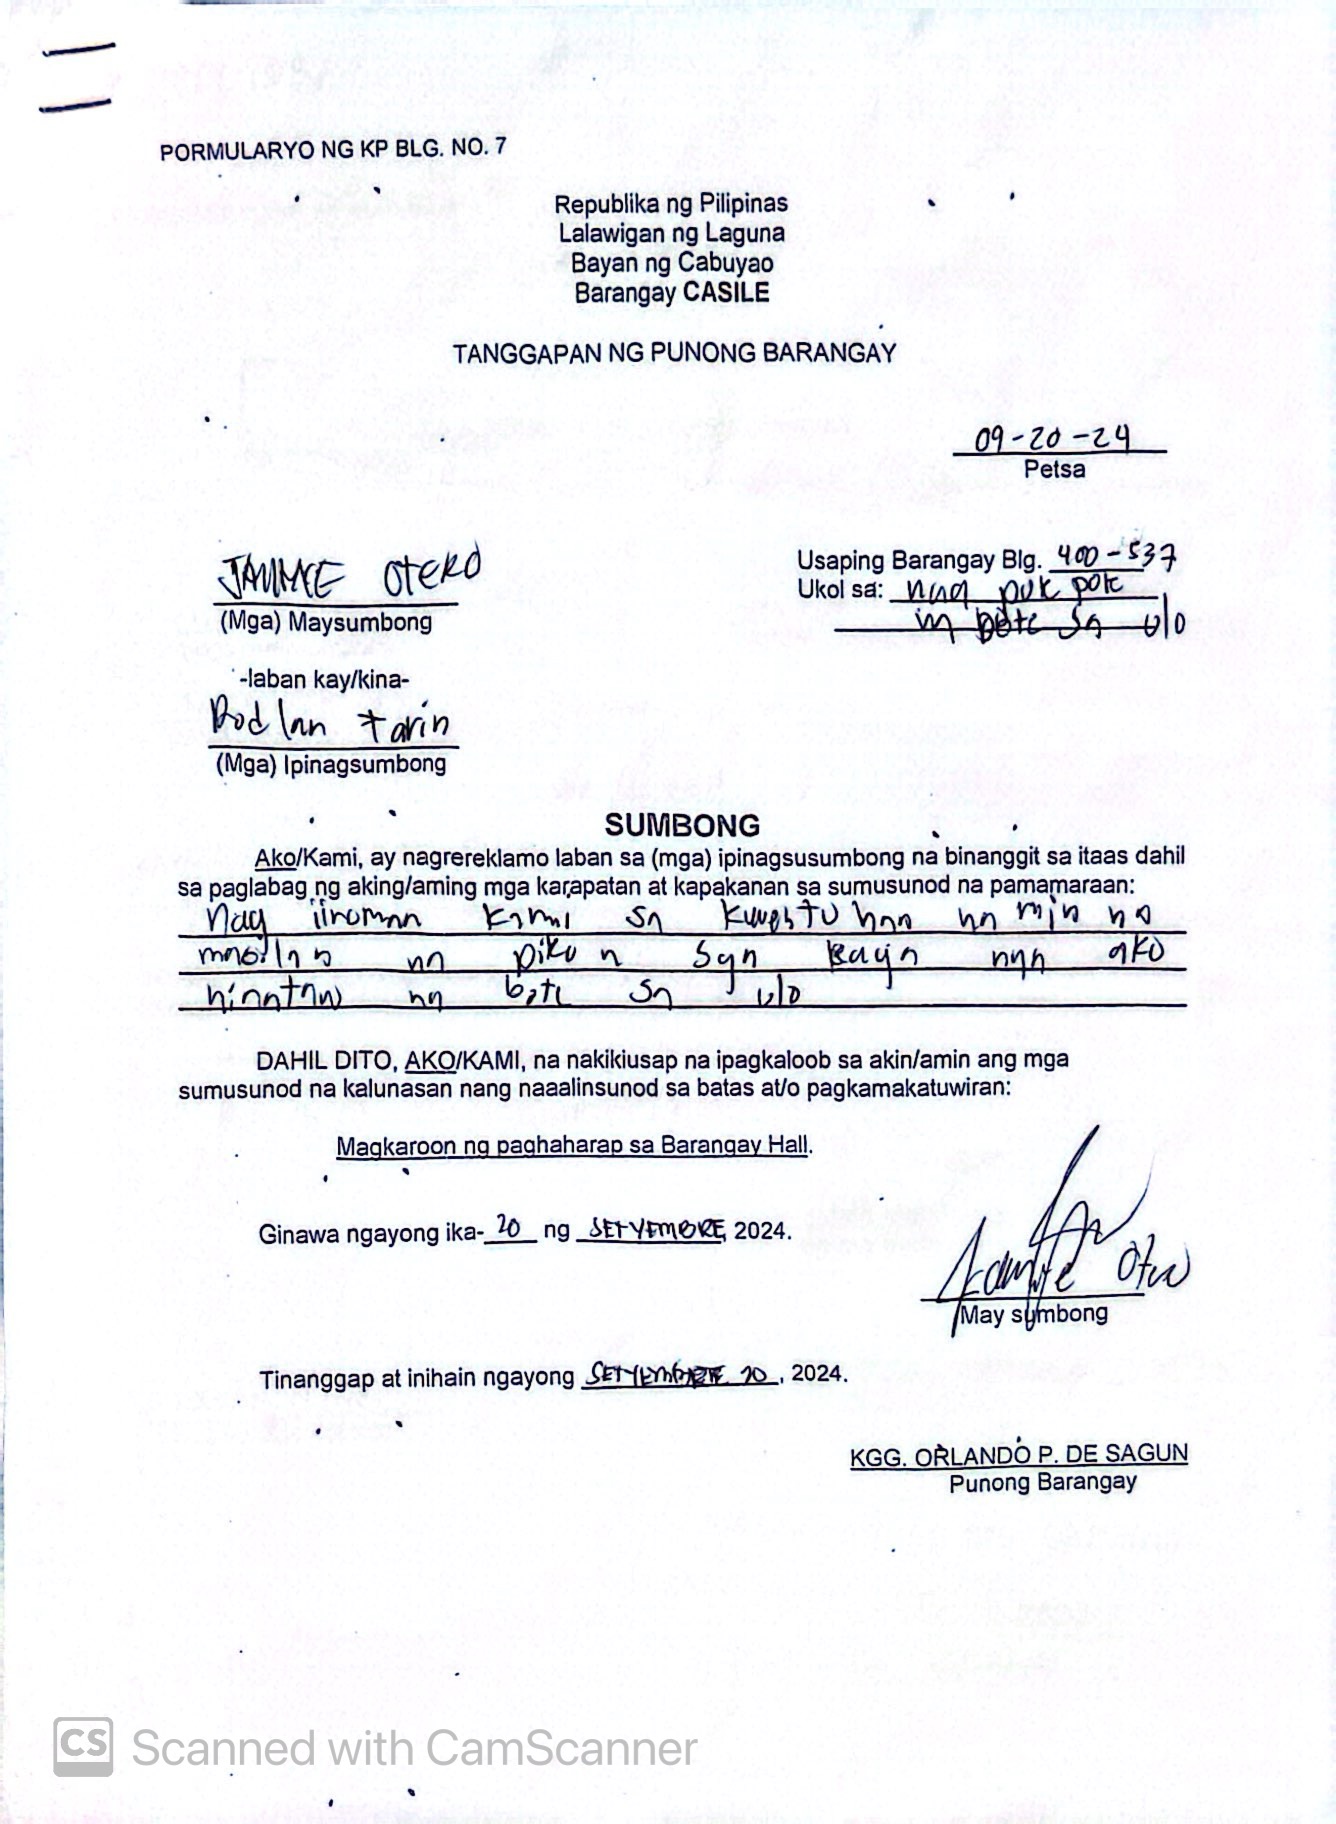 PORMULARYO NG KP BLG. NO. 7
Republika ng Pilipinas
Lalawigan ng Laguna
Bayan ng Cabuyao
Barangay CASILE
TANGGAPAN NG PUNONG BARANGAY
09-20-24
Petsa
OTERO
(Mga) Maysumbong
Usaping Barangay Blg. 400-537
Ukol sa: nag puk pok
bote sa ulo
-laban kay/kina-
Rodlan tarin
(Mga) Ipinagsumbong
SUMBONG
Ako/Kami, ay nagrereklamo laban sa (mga) ipinagsusumbong na binanggit sa itaas dahil
sa paglabag ng aking/aming mga karapatan at kapakanan sa sumusunod na pamamaraan:
Nag iinuman kami sa
na pikon sya kaya nya ako
hinataw ng bote sa ulo
DAHIL DITO, AKO/KAMI, na nakikiusap na ipagkaloob sa akin/amin ang mga
sumusunod na kalunasan nang naaalinsunod sa batas at/o pagkamakatuwiran:
Magkaroon ng paghaharap sa Barangay Hall.
Ginawa ngayong ika-20 ng SETYEMBRE, 2024.
May sumbong
Tinanggap at inihain ngayong SETYEMBRE 20, 2024.
KGG. ORLANDO P. DE SAGUN
Punong Barangay
CS Scanned with CamScanner